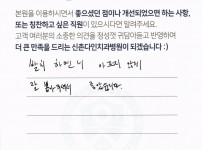 본원을 이용하시면서 좋으셨던 점이나 개선되었으면 하는 사항,
또는 칭찬하고 싶은 직원이 있으시다면 말해주세요.
고객 여러분의 소중한 의견을 정성껏 귀담아듣고 반영하여
더 큰 만족을 드리는 신촌다인치과병원이 되겠습니다 :)
발치 하면서 아프지 않게
잘 좋았습니다.